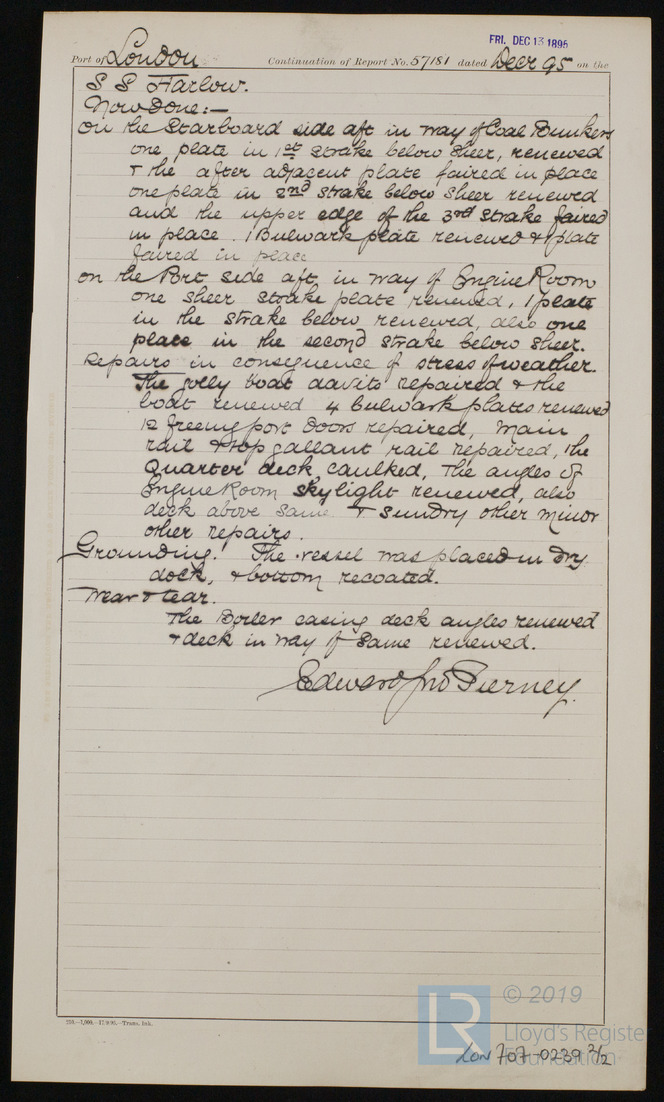 FRI. DEC 13 1895
Port of London Continuation of Report No. 57181 dated Decr 95 on the
S S Harlow.
Now Done:—
On the Starboard side aft in way of Coal Bunkers
one plate in 1st strake below sheer, renewed
& the after adjacent plate faired in place
one plate in 2nd strake below sheer renewed
and the upper edge of the 3rd strake faired
in place. 1 Bulwark plate renewed & 1 plate
faired in place
On the Port side aft in way of Engine Room
one sheer strake plate renewed, 1 plate
in the strake below renewed, also one
place in the second strake below sheer.
Repairs in consequence of stress of weather.
The jolly boat davits repaired & the
boat renewed 4 bulwark plates renewed
12 freeing port doors repaired, main
rail & top gallant rail repaired, the
Quarter deck caulked, The angles of
Engine Room skylight renewed, also
deck above same & sundry other minor
other repairs.
Grounding! The vessel was placed in dry
dock, & bottom recoated.
Wear & tear.
The Boiler casing deck angles renewed
& deck in way of same renewed.
Edward Jno Tierney.
© 2019
LR
Lloyd's Register
Foundation
LON 707-0239 2/2